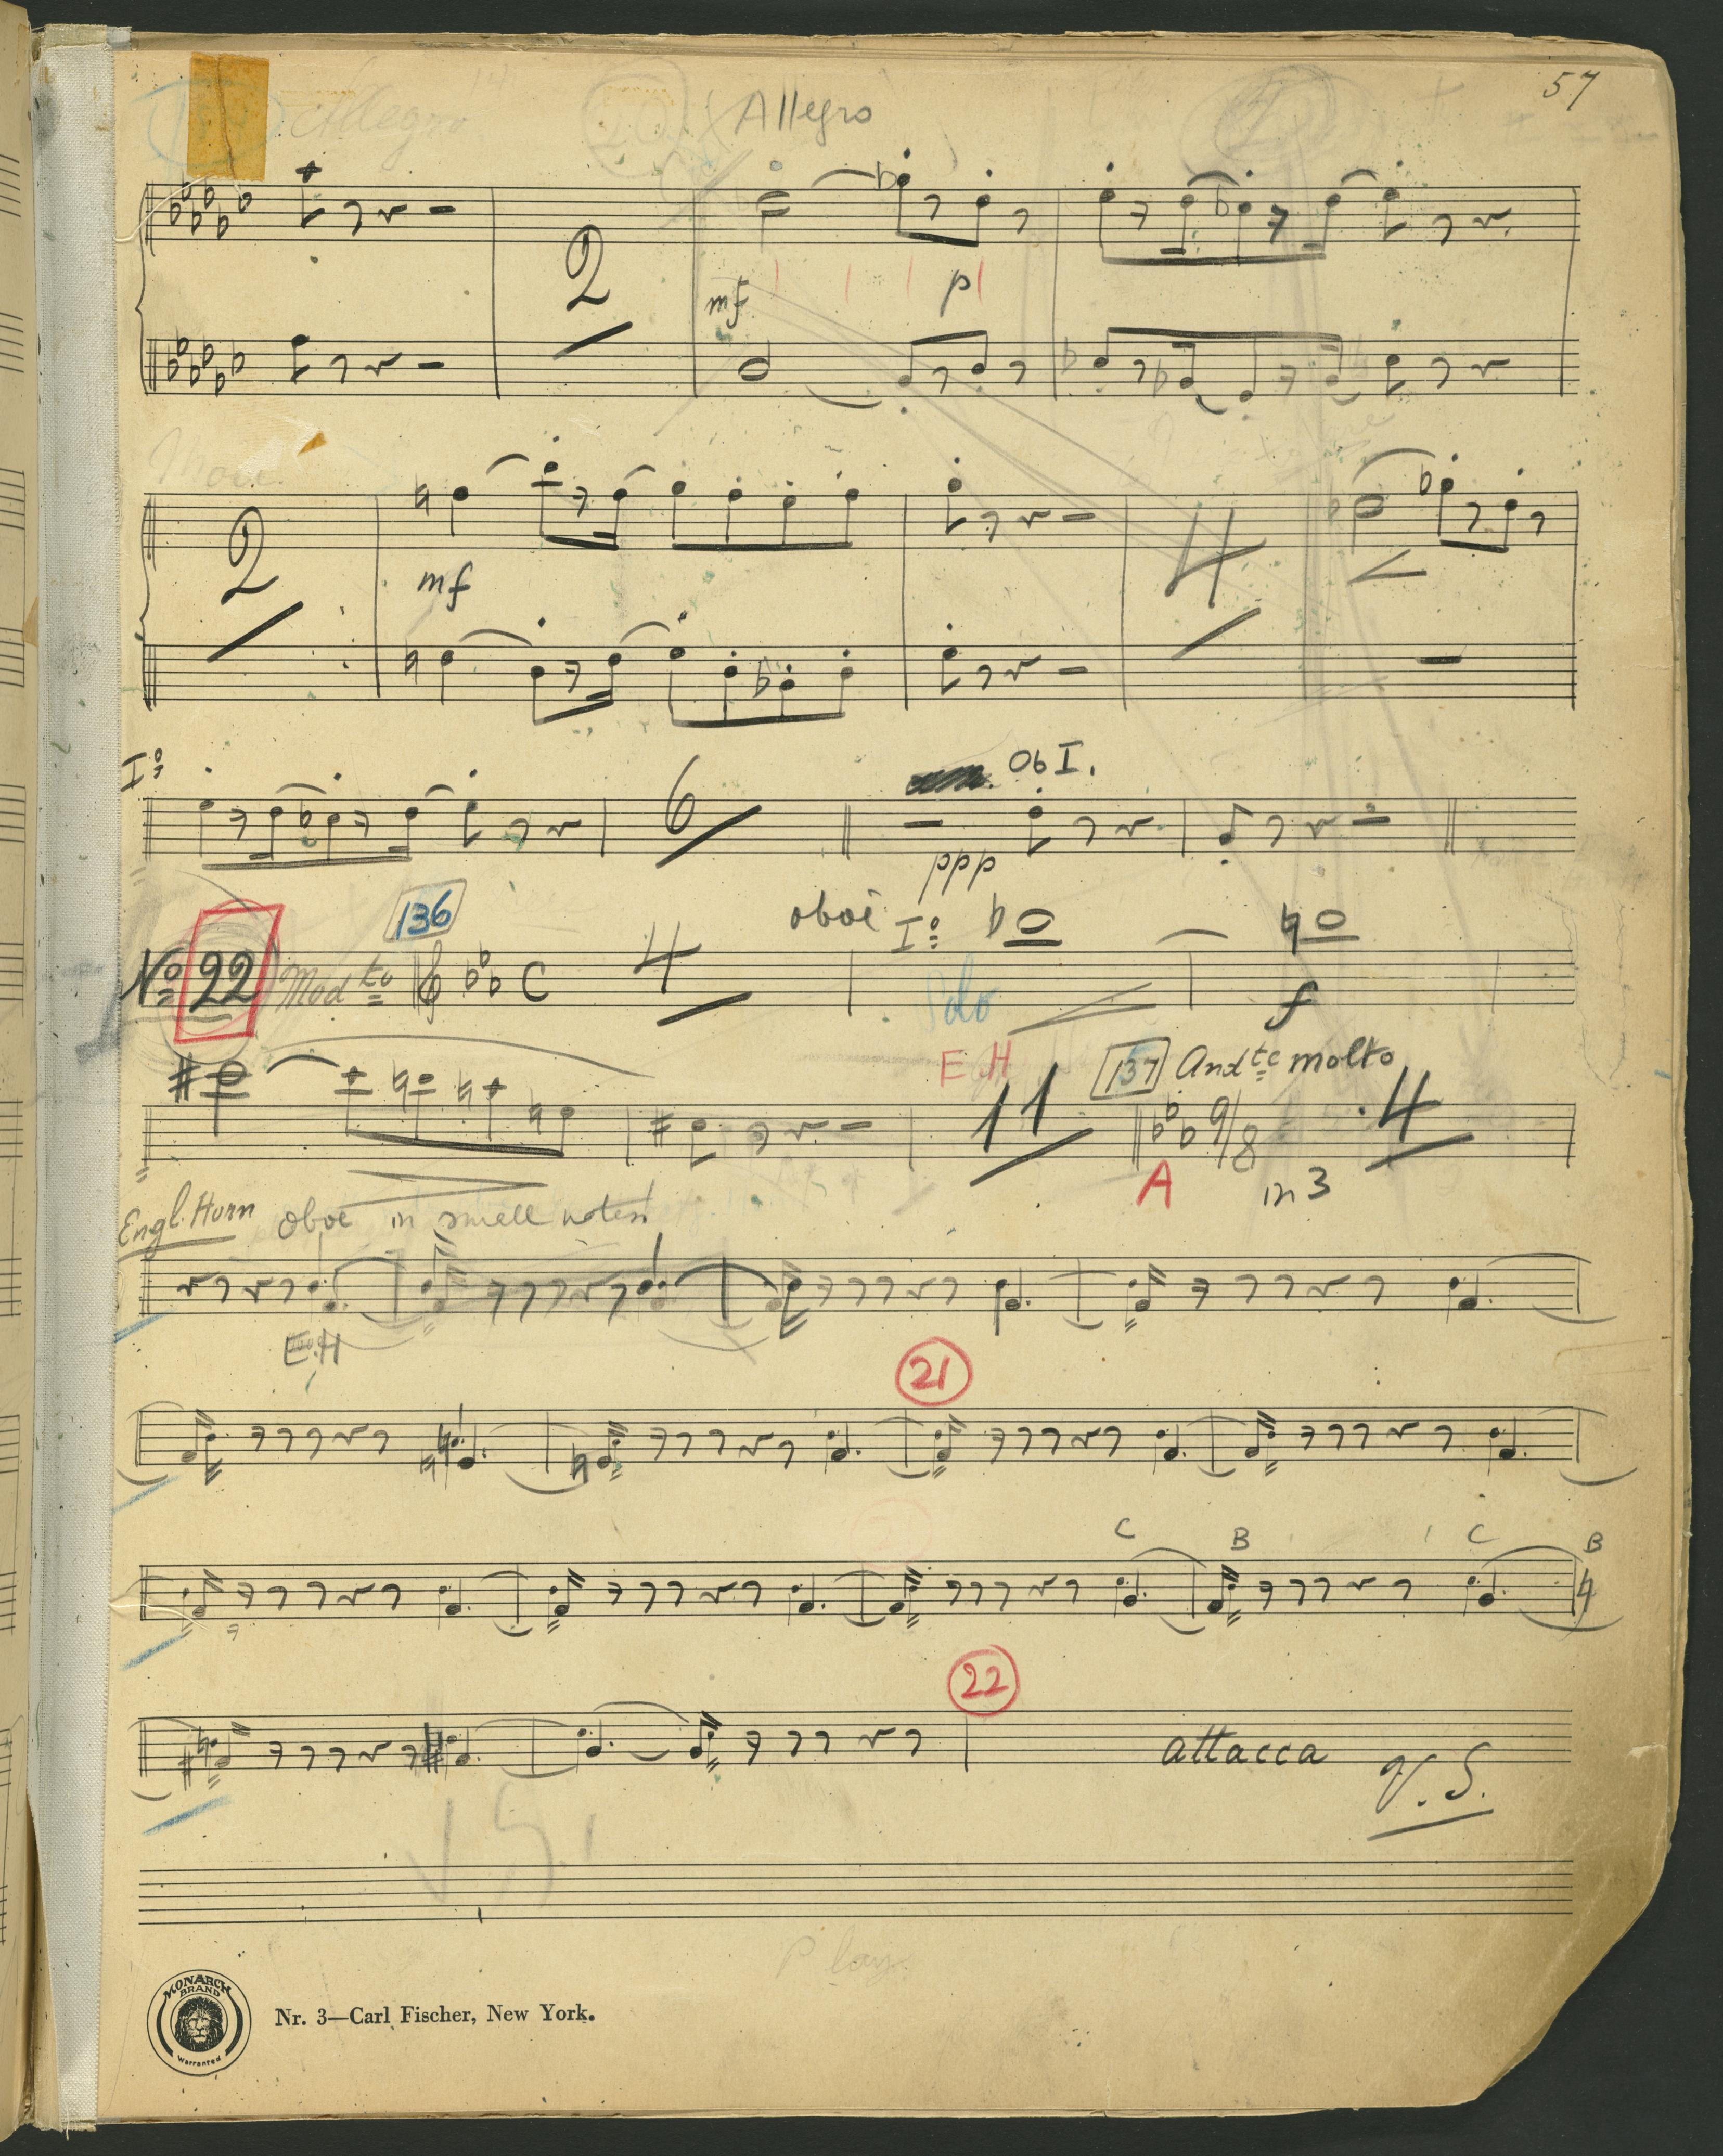 57
Allegro Allegro
2
mf p
2 4
mf
Iº 6 Ob I.
ppp
136 oboe Iº
Nº 22 Modto C 4
Solo f
E H 11 137 Andte molto
9/8 4
A in 3
Engl. Horn oboe in small notes
E.H
21
C B C B
22
attacca V. S.
V S
Play
MONARCH BRAND
Warranted
Nr. 3—Carl Fischer, New York.